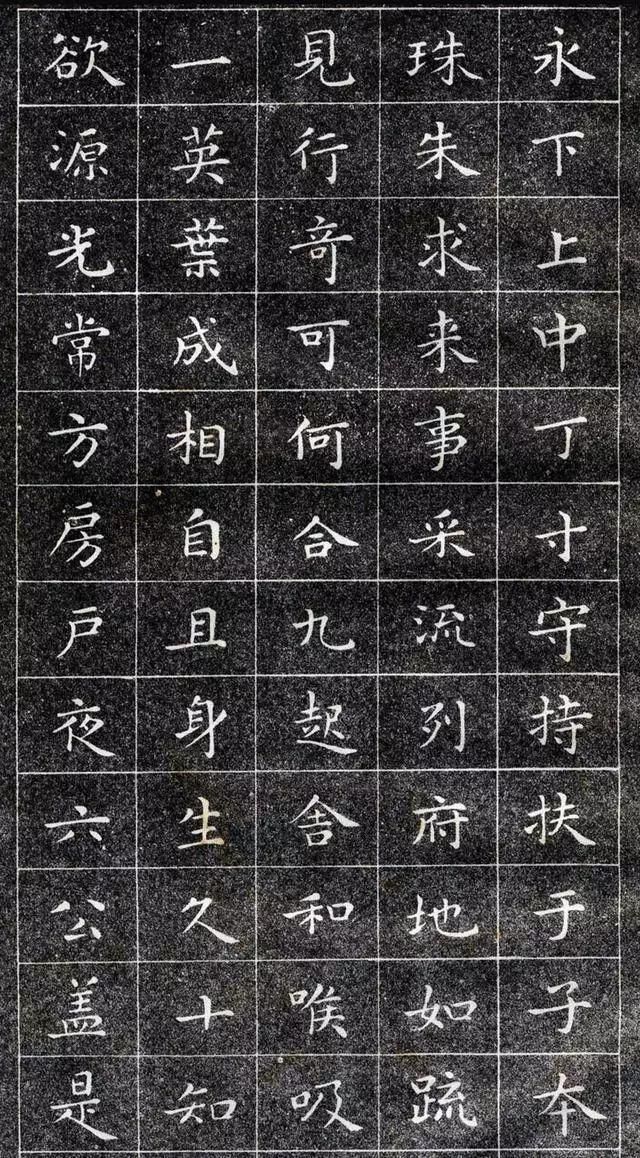 永下上中丁寸守持扶于子本
珠朱求来事采流列府地如䟽
見行竒可何合九起舍和唉吸
一英葉成相自且身生久十知
欲源光常方房戸夜六公盖是